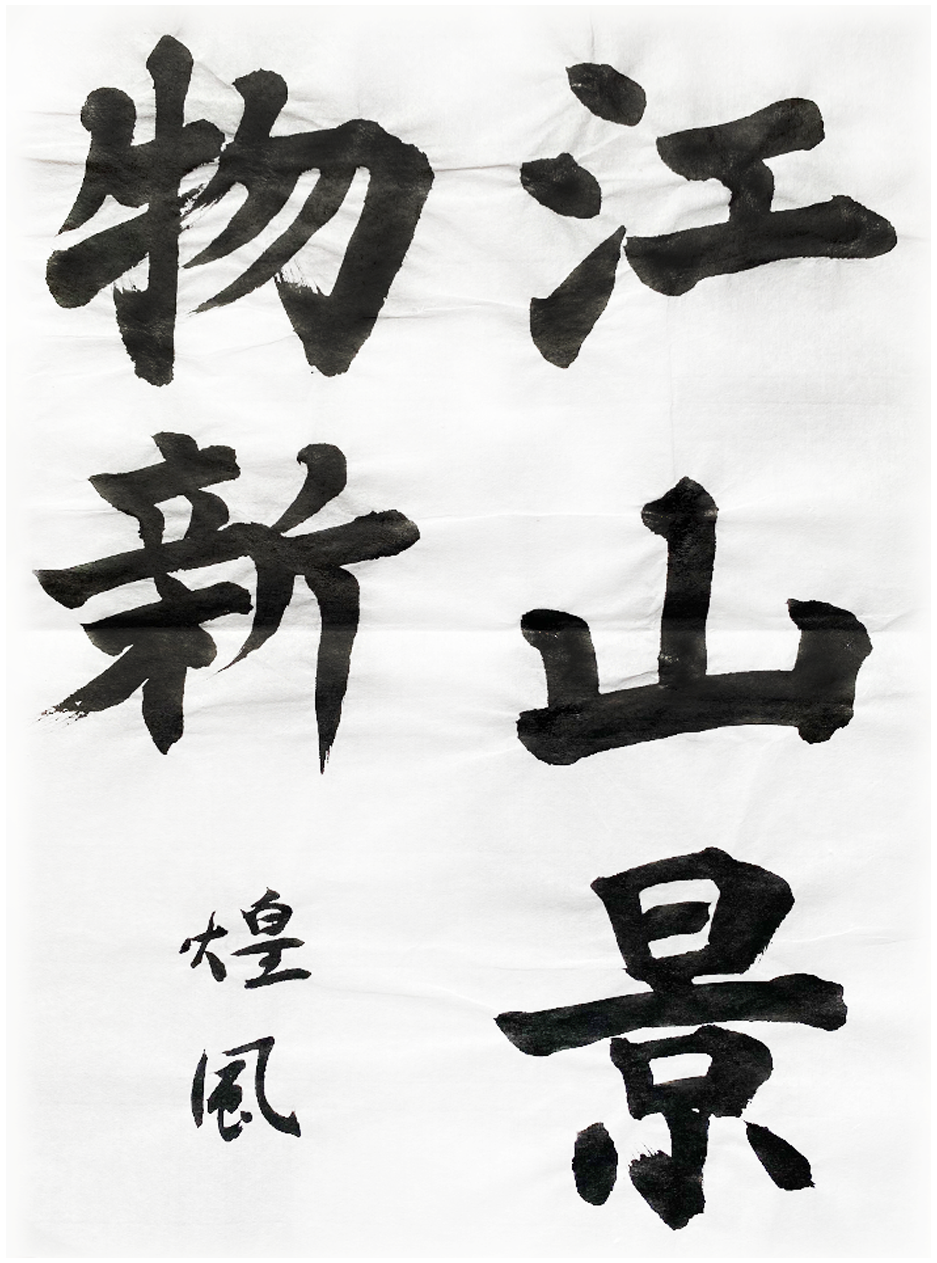 江山景
物新
煌風